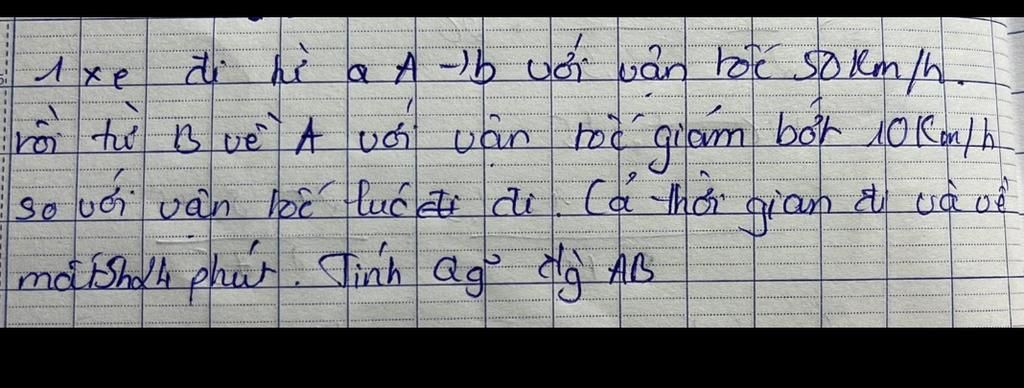 1 xe đi từ A → b với vận tốc 50 Km/h.
rồi từ B về A với vận tốc giảm bớt 10 Km/h
so với vận tốc lúc đi. Cả thời gian đi và về
mất 5h24 phút. Tính Qg² đg AB